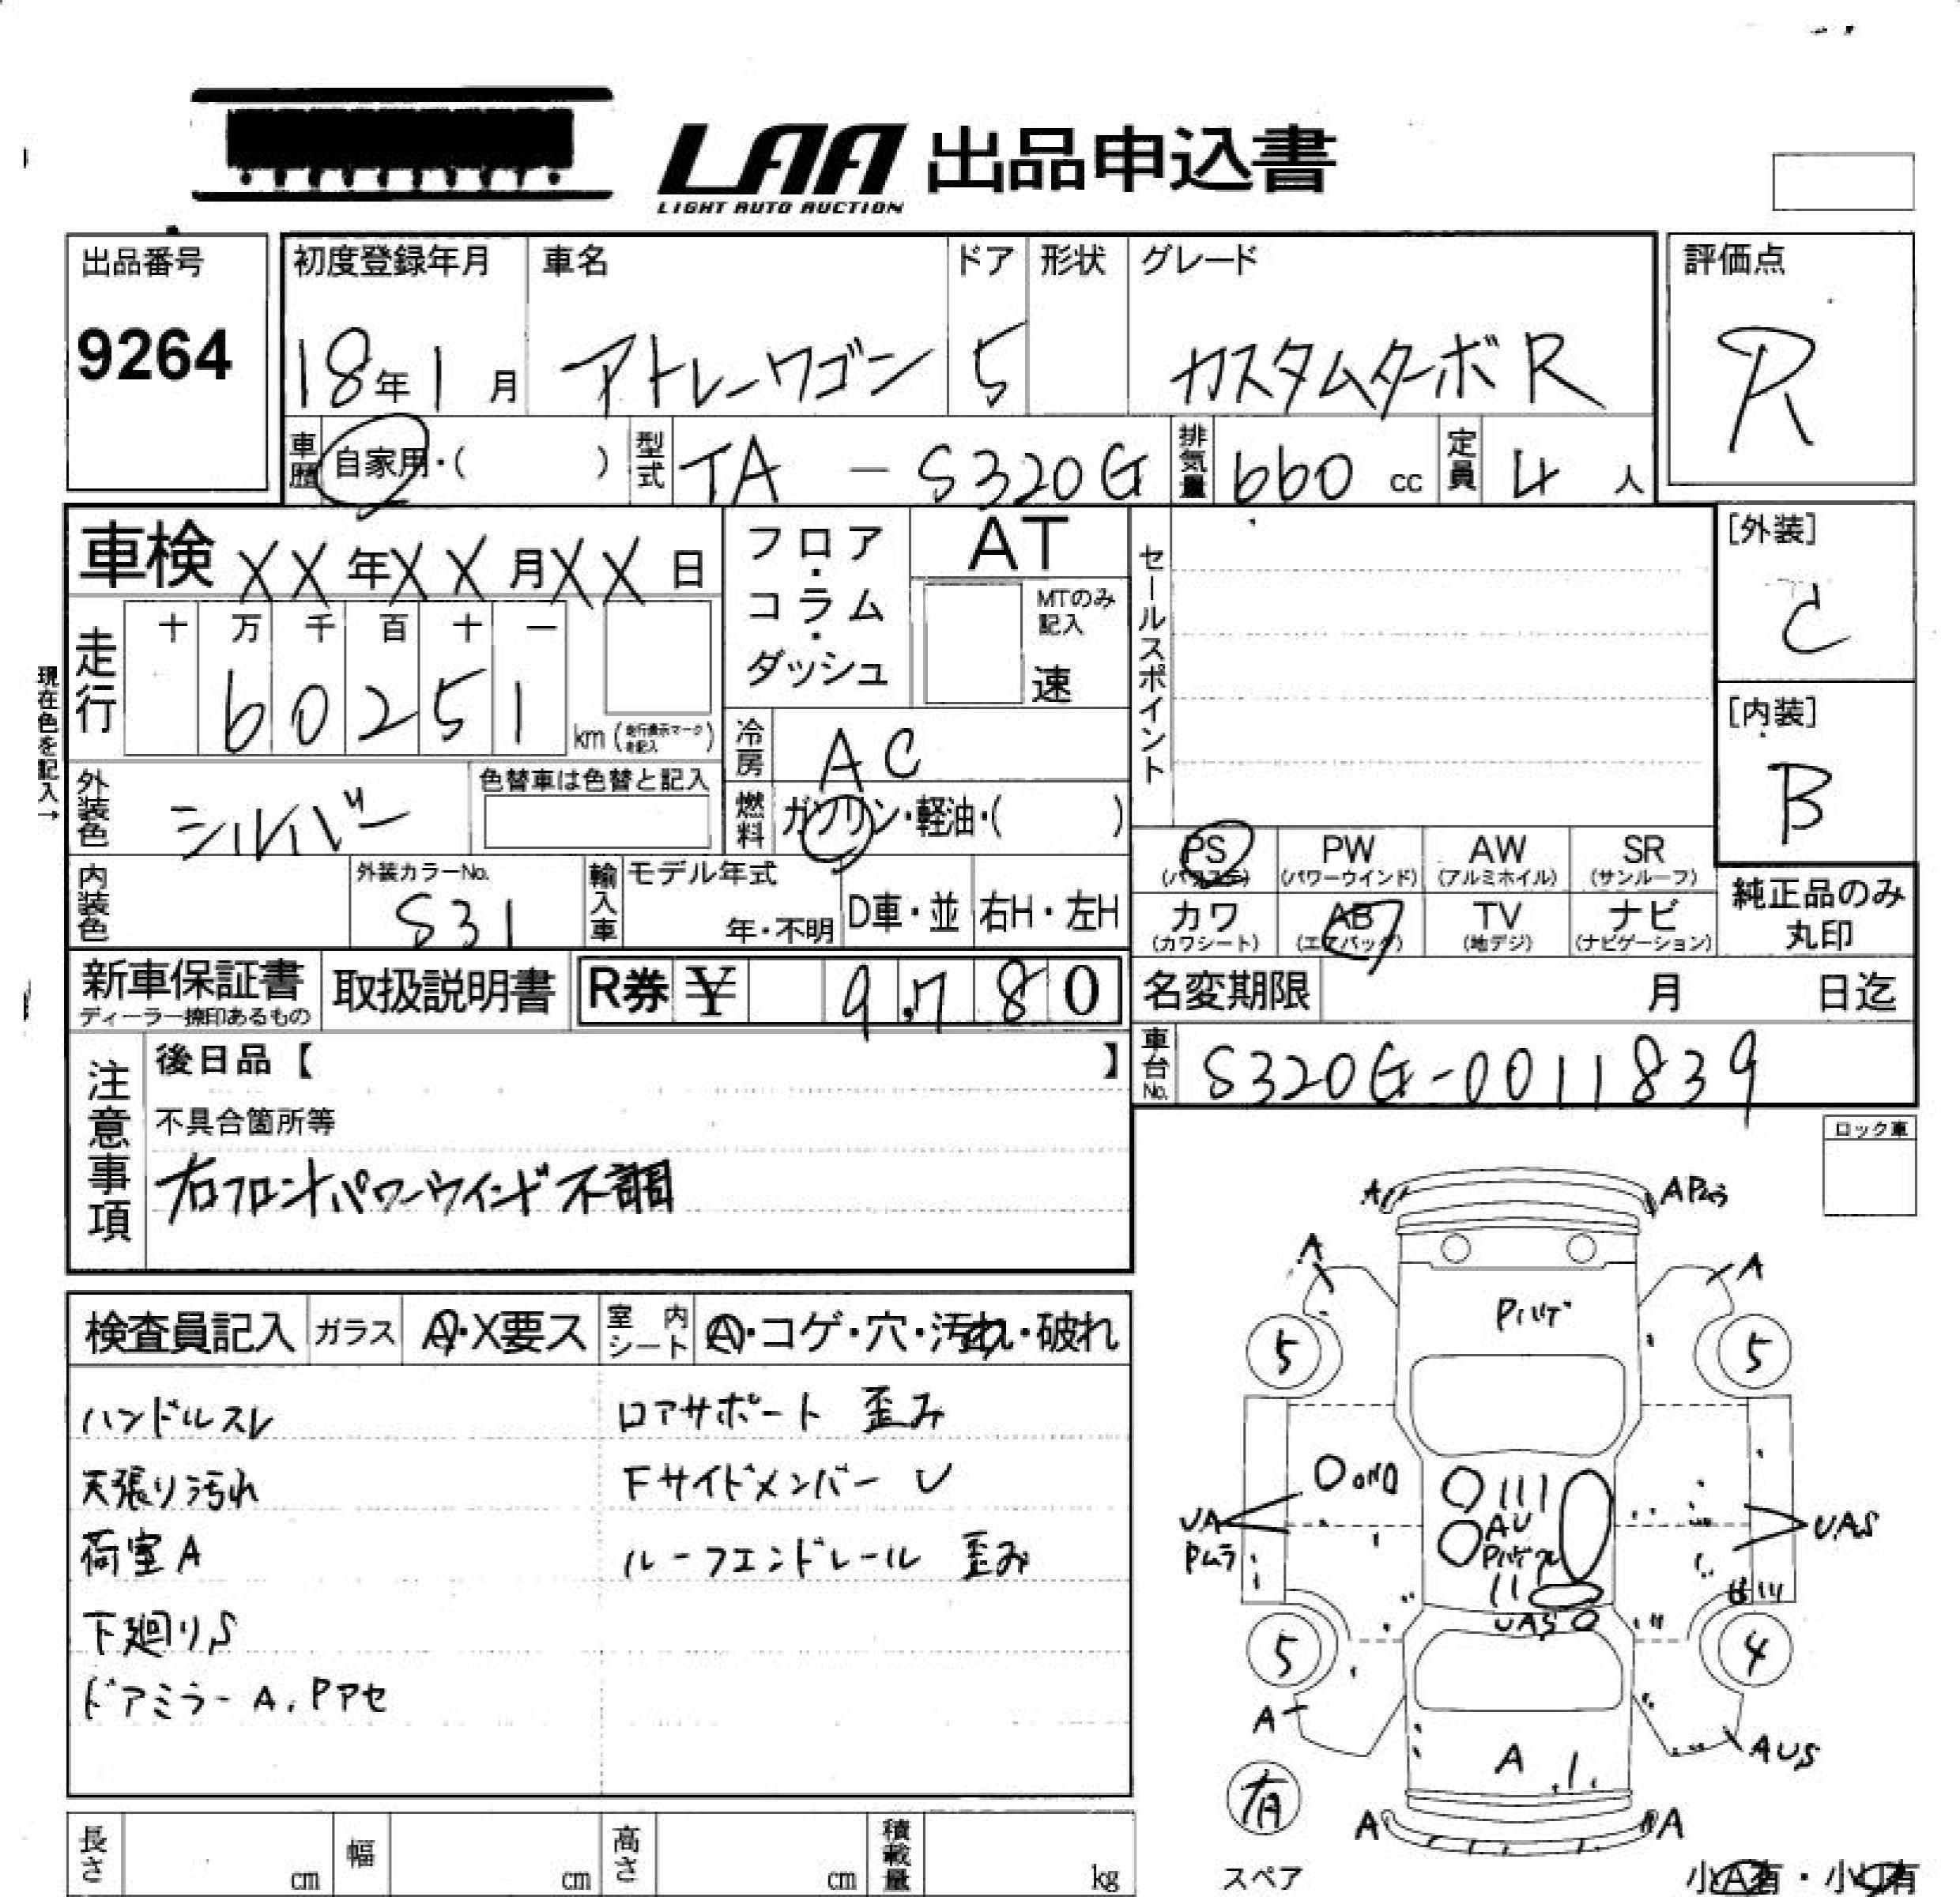 LAA 出品申込書
LIGHT AUTO AUCTION
出品番号
9264
初度登録年月
18年1月
車名
アトレーワゴン
ドア
5
形状
グレード
カスタムターボR
評価点
R
車歴
自家用・( )
型式
TA - S320G
排気量
660 cc
定員
4 人
車検 XX年XX月XX日
フロア・コラム・ダッシュ
AT
MTのみ記入
速
セールスポイント
[外装]
C
[内装]
B
現在色を記入→
走行
十 万 千 百 十 一
60251
km (走行表示マークを記入)
冷房
AC
外装色
シルバー
色替車は色替と記入
燃料
ガソリン・軽油・( )
内装色
外装カラーNo.
S31
輸入車
モデル年式
年・不明
D車・並
右H・左H
PS
(パワステ)
PW
(パワーウインド)
AW
(アルミホイル)
SR
(サンルーフ)
カワ
(カワシート)
AB
(エアバッグ)
TV
(地デジ)
ナビ
(ナビゲーション)
純正品のみ
丸印
新車保証書
ディーラー捺印あるもの
取扱説明書
R券 ¥ 9,780
名変期限 月 日迄
注意事項
後日品【 】
車台No.
S320G-0011839
不具合箇所等
右フロントパワーウインド不調
ロック車
検査員記入
ガラス
A・X要ス
室内シート
A・コゲ・穴・汚れ・破れ
ハンドルスレ
ロアサポート 歪み
天張り汚れ
Fサイドメンバー U
荷室A
ルーフエンドレール 歪み
下廻りS
ドアミラーA, Pアセ
A
APムラ
A
A
Pハゲ
5
5
UA
Pムラ
AU
UAS
UAS
5
4
A
AUS
A
有
スペア
A
A
小A有・小U有
長さ cm
幅 cm
高さ cm
積載量 kg